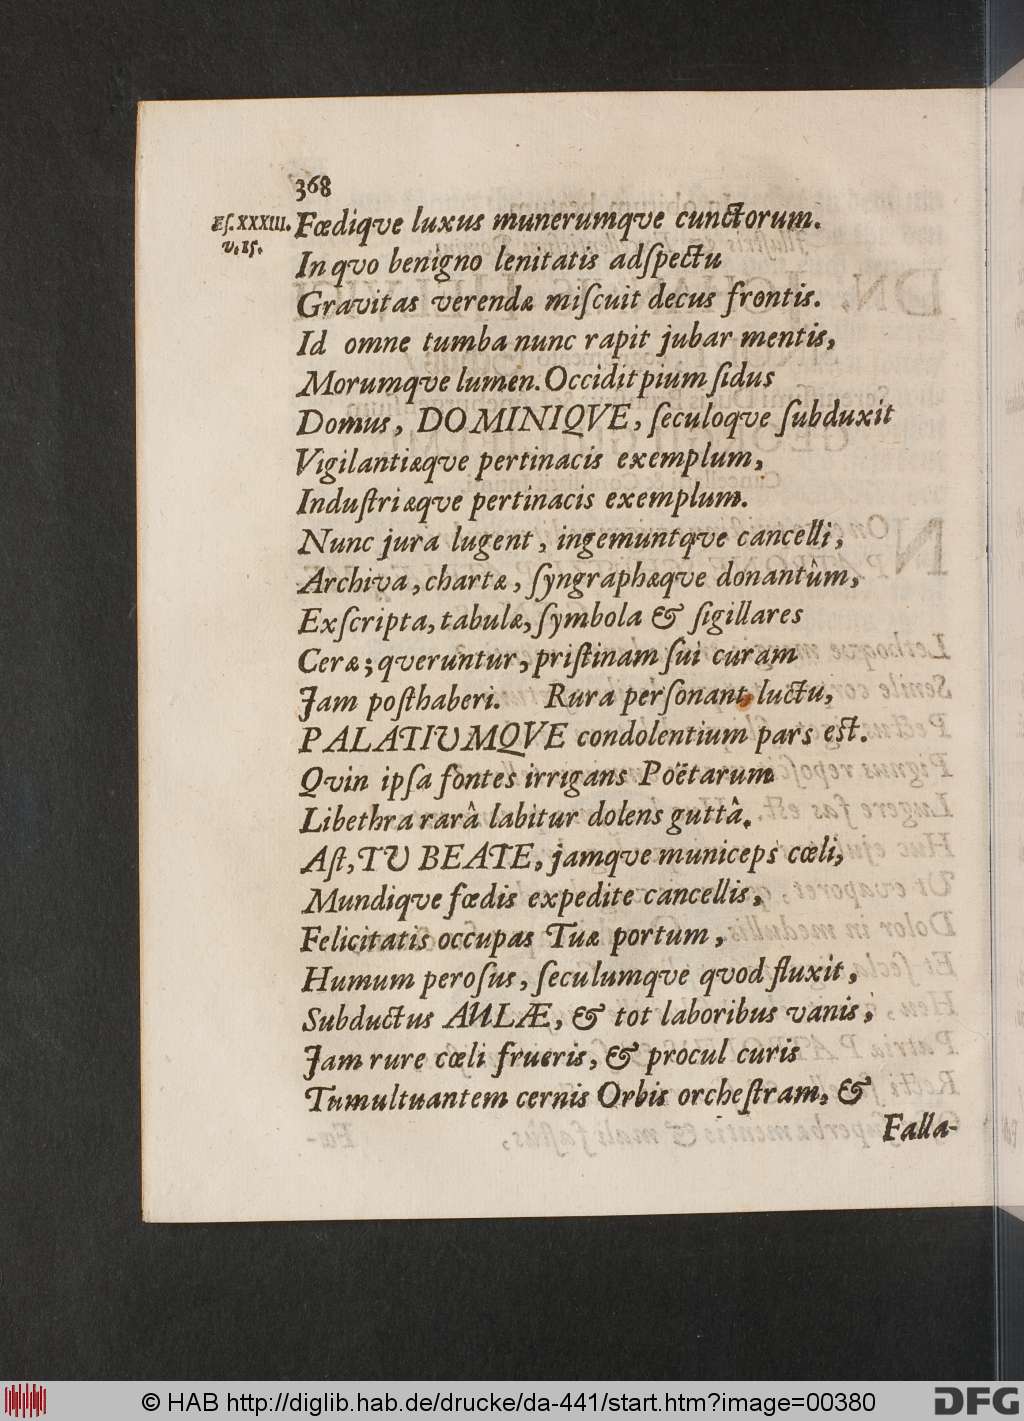 368
Eſ. XXXIII. Fœdiqve luxus munerumqve cunctorum.
v. 15.
In qvo benigno lenitatis adſpectu
Gravitas verendæ miſcuit decus frontis.
Id omne tumba nunc rapit jubar mentis,
Morumqve lumen. Occidit pium ſidus
Domus, DOMINIQVE, ſeculoqve ſubduxit
Vigilantiæqve pertinacis exemplum,
Induſtriæqve pertinacis exemplum.
Nunc jura lugent, ingemuntqve cancelli,
Archiva, chartæ, ſyngraphæqve donantûm,
Exſcripta, tabulæ, ſymbola & ſigillares
Ceræ; qveruntur, priſtinam ſui curam
Jam poſthaberi. Rura perſonant luctu,
PALATIUMQVE condolentium pars eſt.
Qvin ipſa fontes irrigans Poëtarum
Libethra rarâ labitur dolens guttâ.
Aſt, TU BEATE, jamqve municeps cœli,
Mundiqve fœdis expedite cancellis,
Felicitatis occupas Tuæ portum,
Humum peroſus, ſeculumqve qvod fluxit,
Subductus AULÆ, & tot laboribus vanis,
Jam rure cœli frueris, & procul curis
Tumultuantem cernis Orbis orcheſtram, &
Falla-
© HAB http://diglib.hab.de/drucke/da-441/start.htm?image=00380
DFG